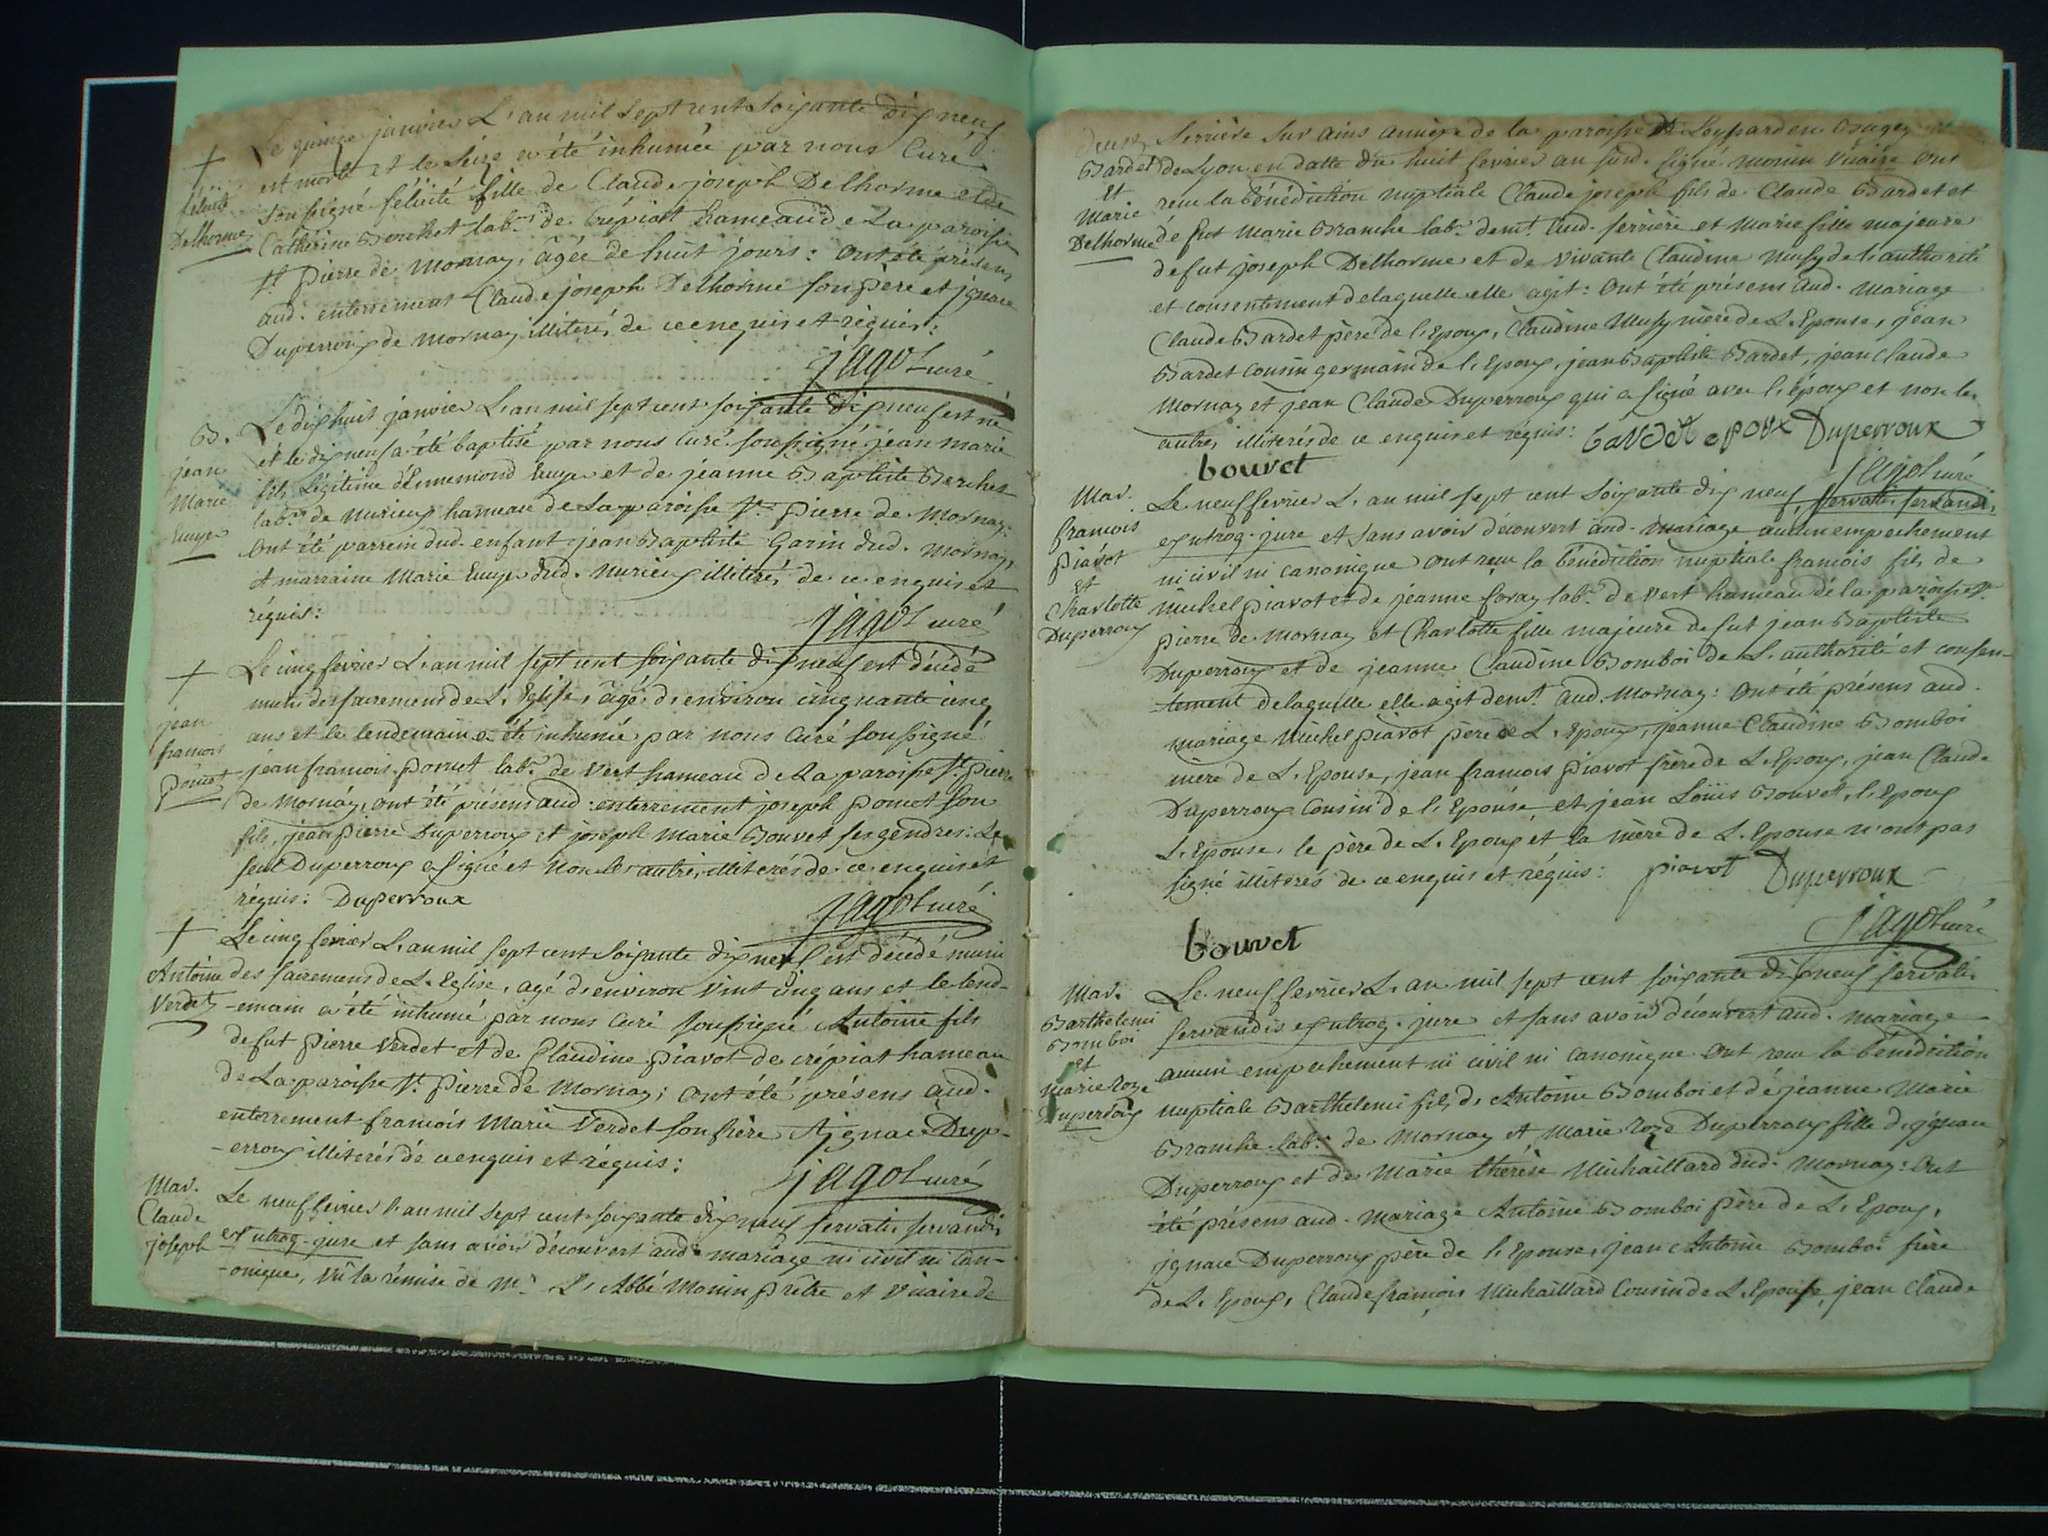 Le quinze janvier L'an mil sept cent soixante dix neuf
+
est morte et le seize a été inhumée par nous Curé
félicité
Delhorme
soussigné félicité fille de Claude joseph Delhorme et de
Catherine Bouchet lab.r de Crépiat hameau de La paroisse
St pierre de Mornay, âgée de huit jours: Ont été présens
aud. enterrement Claude joseph Delhorme son père et jgnace
Duperroux de Mornay illiterés de ce enquis et réquis:
jagot curé
B.
jean
Marie
Le dix huit janvier L'an mil sept cent soixante dix neuf est né
et le dix neuf a été baptisé par nous Curé soussigné jean marie
fils légitime d'Ennemond et de jeanne Baptiste
lab.r de Nurieux hameau de La paroisse St pierre de Mornay:
Ont été parrein dud. enfant jean Baptiste Garin dud. Mornay,
et marraine Marie dud. Nurieux illiterés de ce enquis et
réquis:
jagot curé
+
jean
francois
Le cinq fevrier L'an mil sept cent soixante dix neuf est décédé
muni des sacremens de L'Eglise, âgé d'environ cinquante cinq
ans et le lendemain a été inhumé par nous Curé soussigné
jean francois lab.r de Vert hameau de La paroisse St pierre
de Mornay, ont été présens aud. enterrement joseph son
fils, jean pierre Duperroux et joseph Marie Bouvet ses gendres: Le
seul Duperroux a signé et non les autres, illiterés de ce enquis et
réquis: Duperroux
jagot curé
+
Antoine
Verdet
Le cinq fevrier L'an mil sept cent soixante dix neuf est décédé muni
des sacremens de L'Eglise, agé d'environ vint cinq ans et le lend-
-emain a été inhumé par nous Curé soussigné Antoine fils
de fut pierre Verdet et de Claudine piavot de crépiat hameau
de La paroisse St pierre de Mornay; Ont été présens aud.
enterrement francois Marie Verdet son frère et jgnace Dup-
-erroux illiterés de ce enquis et réquis:
jagot curé
Mar.
Claude
joseph
Le neuf fevrier l'an mil sept cent soixante dix neuf servatis servandis
ex utroq. jure et sans avoir découvert aud. mariage ni civil ni can-
-onique, vû la rémise de Mr. L'Abbé Monin prêtre et Vicaire de
Serrière sur ains annèxe de la paroisse de Leyssard en Bugey
Bardet
et
Marie
Delhorme
de Lyon en datte du huit fevrier an susd. signé Monin Vicaire ont
recu la bénédiction nuptiale Claude joseph fils de Claude Bardet et
de fut Marie Branche lab.r demt. aud. serrière et Marie fille majeure
de fut joseph Delhorme et de vivante Claudine Musy de l'authorité
et consentement de laquelle elle agit: Ont été présens aud. Mariage
Claude Bardet père de l'Epoux, Claudine Musy mère de L'Epouse, jean
Bardet Cousin germain de l'Epoux, jean Baptiste Bardet, jean Claude
Mornay et jean Claude Duperroux qui a signé avec l'Époux et non les
autres illiterés de ce enquis et réquis: bardet epoux Duperroux
bouvet
jagot curé
Mar.
francois
Piavot
et
Charlotte
Duperroux
Le neuf fevrier L'an mil sept cent soixante dix neuf, servatis servandis
ex utroq. jure et sans avoir découvert aud. Mariage aucun empechement
ni civil ni canonique ont reçu la bénédiction nuptiale francois fils de
Michel piavot et de jeanne foray lab.r de Vert hameau de la paroisse St
pierre de Mornay et Charlotte fille majeure de fut jean Baptiste
Duperroux et de jeanne Claudine Bomboi de L'authorité et consen-
-tement de laquelle elle agit demt. aud. Mornay: Ont été présens aud.
mariage Michel piavot père de L'Epoux, jeanne Claudine Bomboi
mère de L'Epouse, jean francois piavot frère de L'Epoux, jean Claude
Duperroux Cousin de l'Epouse, et jean Loüis Bouvet, l'Epoux
L'Epouse, le père de L'Epoux et la mère de L'Epouse n'ont pas
signé illiterés de ce enquis et réquis: piavot Duperroux
jagot curé
bouvet
Mar.
Barthelemi
Bomboi
et
Marie Roze
Duperroux
Le neuf fevrier L'an mil sept cent soixante dix neuf servatis
servandis ex utroq. jure et sans avoir découvert aud. mariage
aucun empechement ni civil ni canonique ont recu la bénédiction
nuptiale Barthelemi fils d'Antoine Bomboi et de jeanne Marie
Branche lab.r de Mornay et Marie Roze Duperroux fille d'jgnace
Duperroux et de Marie thérèse Michaillard dud. Mornay: Ont
été présens aud. Mariage Antoine Bomboi père de L'Epoux,
jgnace Duperroux père de l'Epouse, jean Antoine Bomboi frère
de L'Epoux, Claude francois Michaillard Cousin de L'Epouse, jean Claude